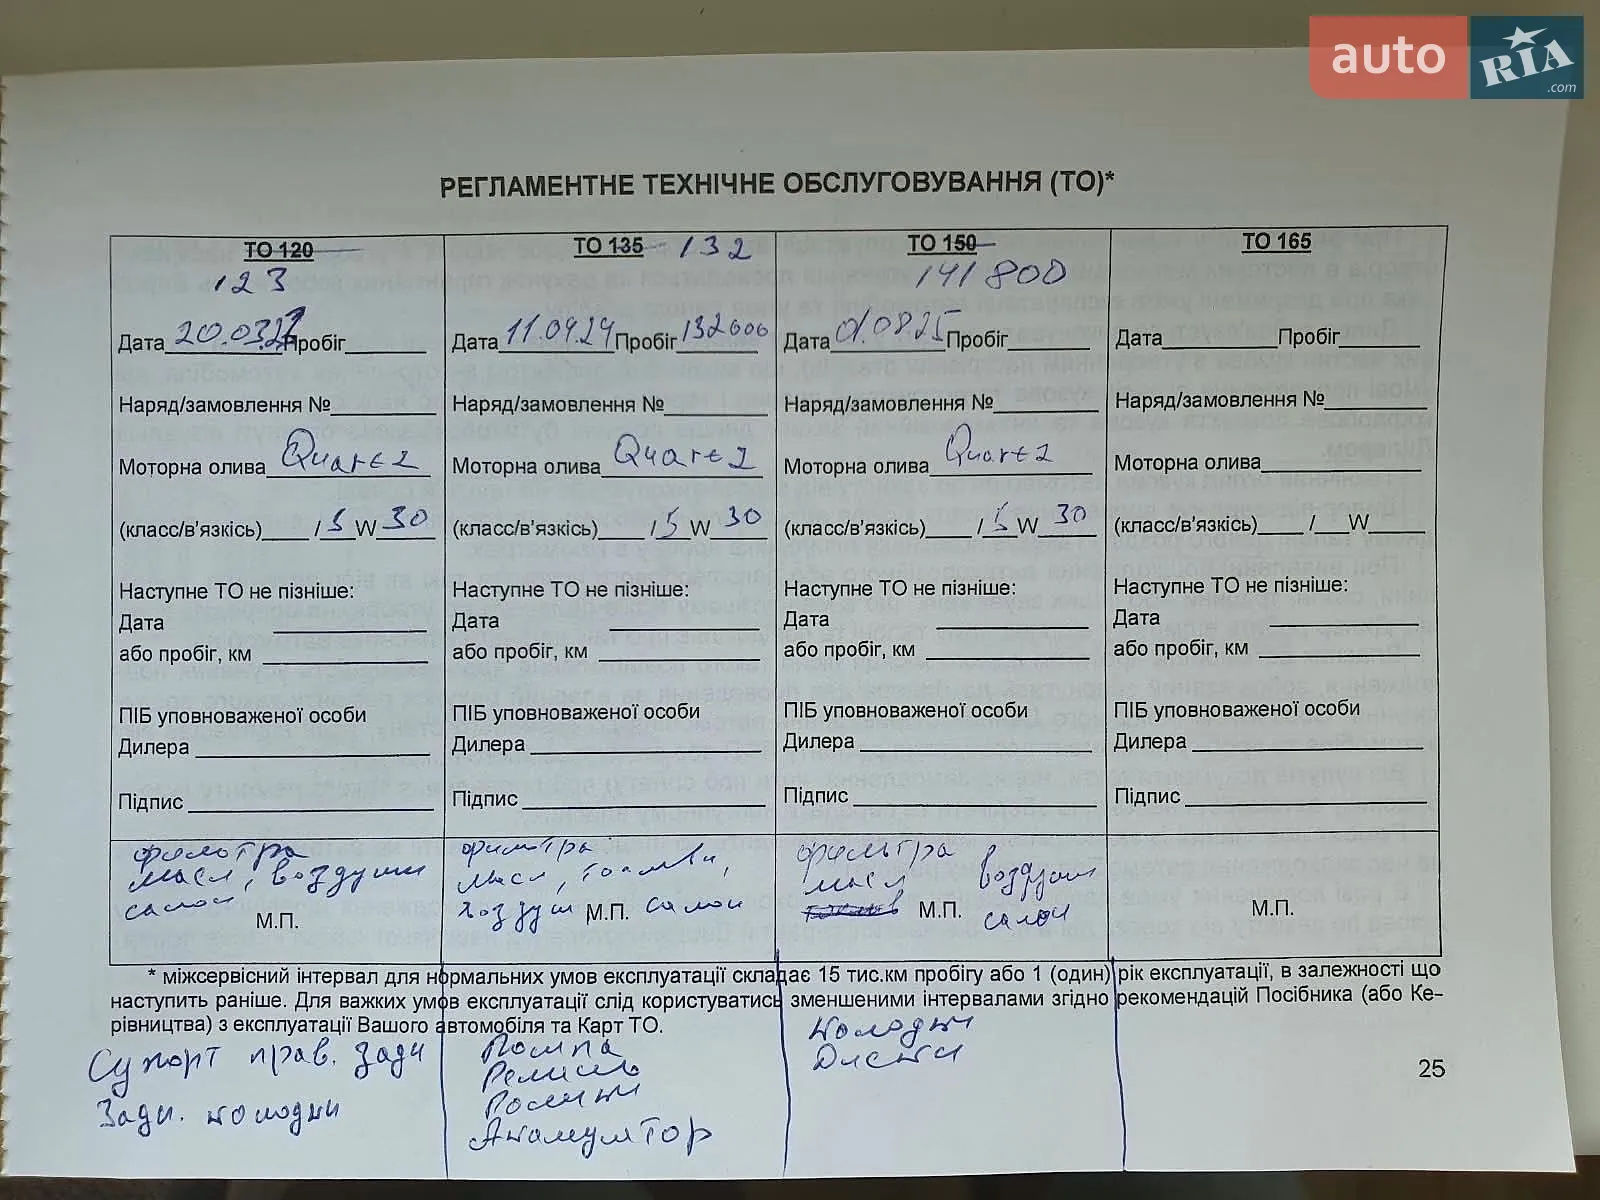 auto RIA.com
РЕГЛАМЕНТНЕ ТЕХНІЧНЕ ОБСЛУГОВУВАННЯ (ТО)*
ТО 120
123
Дата 20.03.2 Пробіг
Наряд/замовлення №
Моторна олива Quartz
(класс/в'язкісь) / 5 W 30
Наступне ТО не пізніше:
Дата
або пробіг, км
ПІБ уповноваженої особи
Дилера
Підпис
фильтра
масл, воздушн
салон
М.П.
ТО 135 132
Дата 11.04.24 Пробіг 132000
Наряд/замовлення №
Моторна олива Quartz
(класс/в'язкісь) / 5 W 30
Наступне ТО не пізніше:
Дата
або пробіг, км
ПІБ уповноваженої особи
Дилера
Підпис
фильтра
масл, топливн,
воздуш М.П. салон
ТО 150
141800
Дата 01.08.25 Пробіг
Наряд/замовлення №
Моторна олива Quartz
(класс/в'язкісь) / 5 W 30
Наступне ТО не пізніше:
Дата
або пробіг, км
ПІБ уповноваженої особи
Дилера
Підпис
фильтра
масл воздушн
М.П. салон
ТО 165
Дата Пробіг
Наряд/замовлення №
Моторна олива
(класс/в'язкісь) / W
Наступне ТО не пізніше:
Дата
або пробіг, км
ПІБ уповноваженої особи
Дилера
Підпис
М.П.
* міжсервісний інтервал для нормальних умов експлуатації складає 15 тис.км пробігу або 1 (один) рік експлуатації, в залежності що
наступить раніше. Для важких умов експлуатації слід користуватись зменшеними інтервалами згідно рекомендацій Посібника (або Ке-
рівництва) з експлуатації Вашого автомобіля та Карт ТО.
Супорт прав. задн
Задн. колодки
Помпа
Ремень
Ролики
Акамулятор
колодки
Диски
25